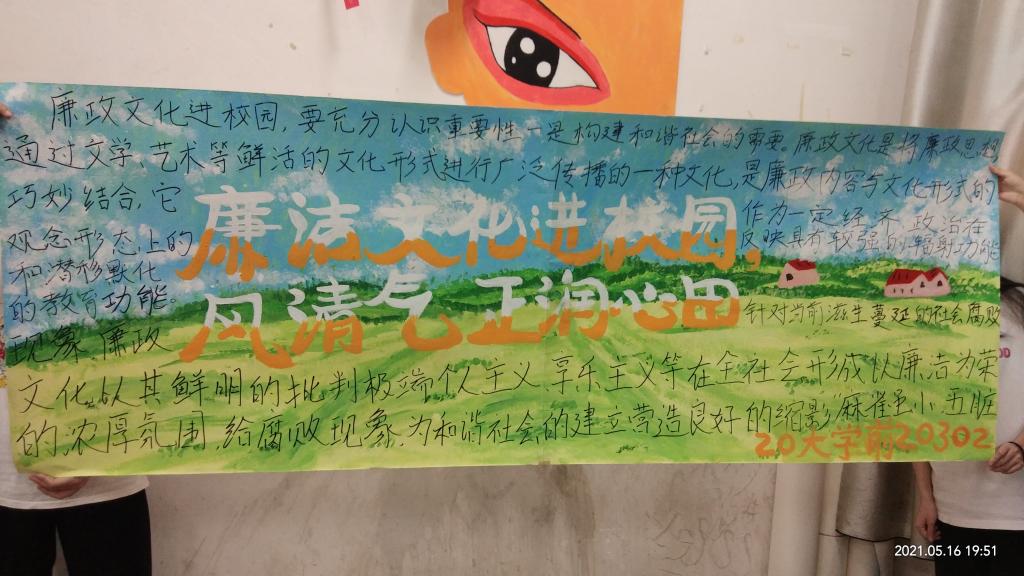 廉政文化进校园,要充分认识重要性一是构建和谐社会的需要。廉政文化是将廉政思想
通过文学 艺术等鲜活的文化形式进行广泛传播的一种文化,是廉政内容与文化形式的
巧妙结合,它
作为一定经济 政治在
观念形态上的
反映具有较强的辐射功能
和潜移默化
的教育功能。
廉洁文化进校园,
风清气正润心田
针对当前滋生蔓延的社会腐败
现象 廉政
文化以其鲜明的批判极端个人主义、享乐主义等在全社会形成以廉洁为荣
的浓厚氛围,给腐败现象.为和谐社会的建立营造良好的缩影"麻雀虽小,五脏
20大学前20302
2021.05.16 19:51